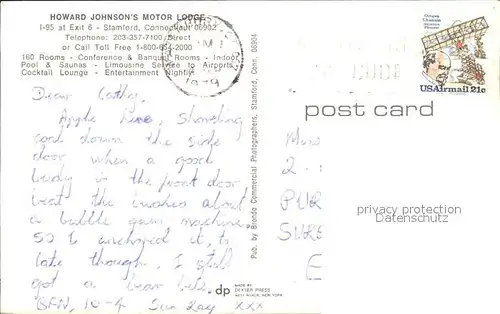 HOWARD JOHNSON'S MOTOR LODGE
I-95 at Exit 6 - Stamford, Connecticut 06902
Telephone: 203-357-7100 Direct
or Call Toll Free 1-800-654-2000
160 Rooms - Conference & Banquet Rooms - Indoor
Pool & Saunas - Limousine Service to Airports
Cocktail Lounge - Entertainment Nightly
1979
USAirmail 21c
post card
Dear Cathy,
Apple here, Shoveling
coal down the side
door when a good
buddy in the front door
beat the bushes about
a bubble gum machine,
so I anchored it, to
late though, I still
got a bear bite.
BFN, 10-4 Sun Ray XXX
Pub. by Brenda Commercial Photographers, Stamford, Conn. 06904
dp
MADE BY
DEXTER PRESS
WEST NYACK, NEW YORK
2.
PUR
SURE
E
privacy protection
Datenschutz